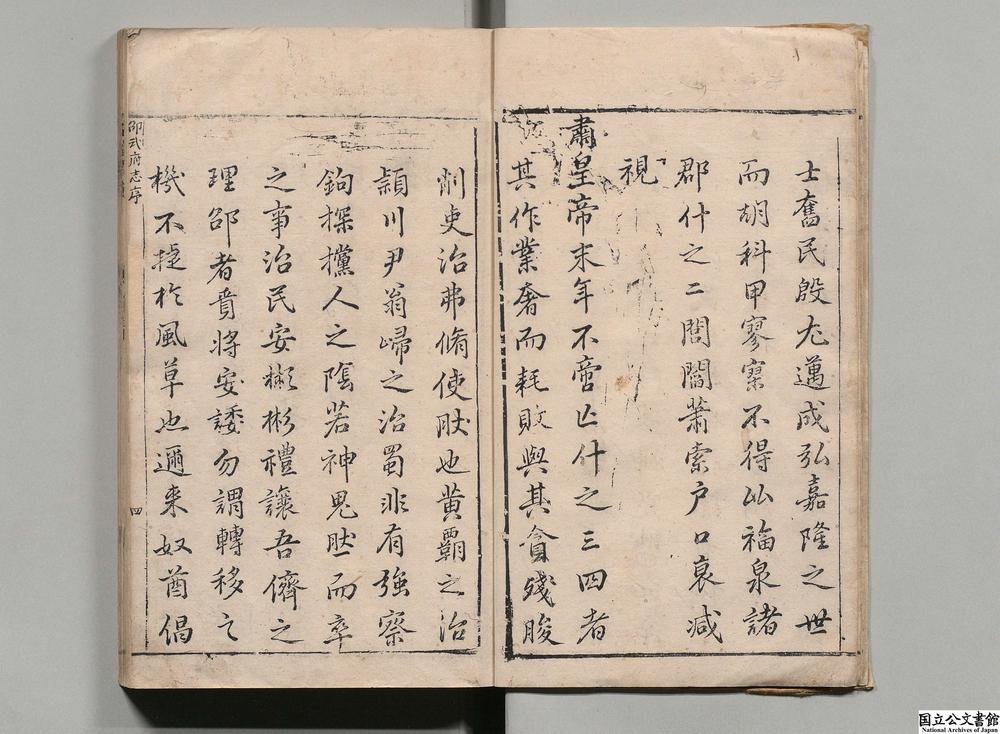 士奮民殷尤邁成弘嘉隆之世
而胡科甲寥寥不得比福泉諸
郡什之二閭閻蕭索戶口衰減
視
肅皇帝末年不啻亡什之三四者
其作業奢而耗敗與其貪殘朘
削吏治弗脩使肰也黃覇之治
潁川尹翁歸之治蜀非有強察
鉤探攩人之陰若神鬼肰而率
之事治民安彬彬禮讓吾儕之
理邵者賁將安諉勿謂轉移之
機不捷於風草也邇來奴酋倡
邵武府志序
四
国立公文書館
National Archives of Japan